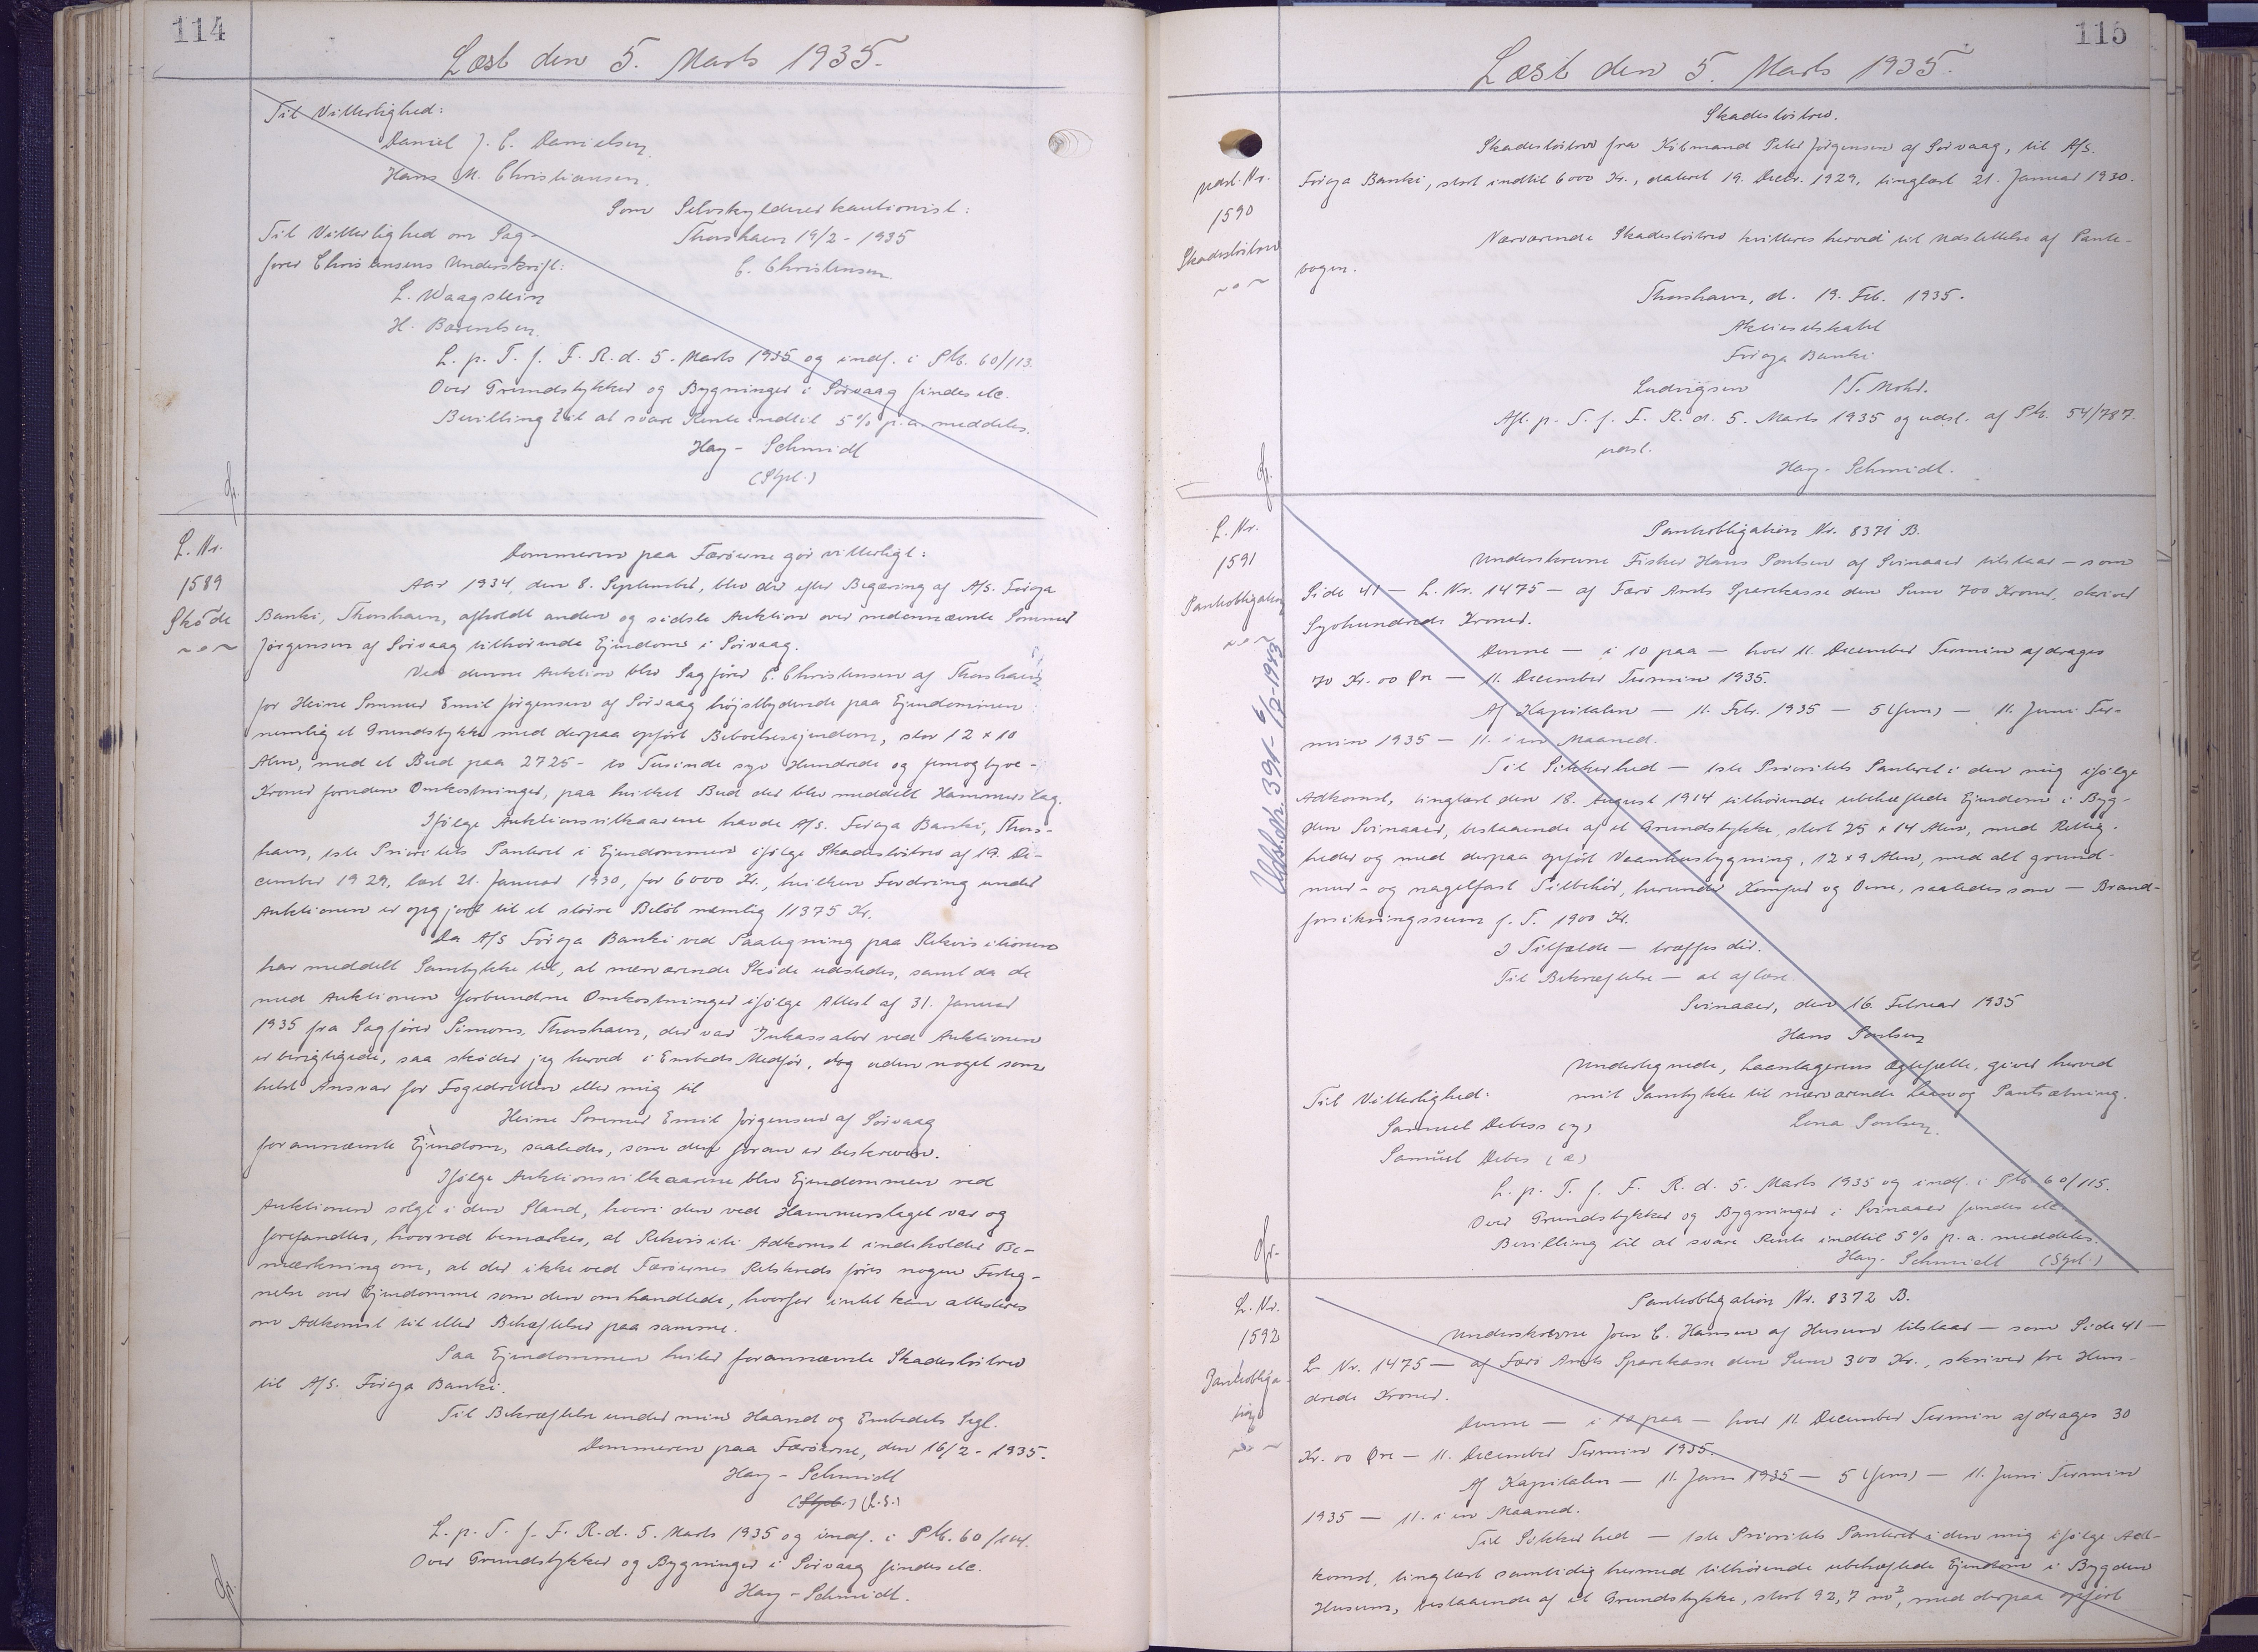 114
Læst den 5. Marts 1935.
Til Vitterlighed:
Daniel J. C. Danielsen
Hans M. Christiansen.
Som Selvskyldnerkautionist:
Til Vitterlighed om Sag-
Thorshavn 19/2 - 1935
fører Christensens Underskrift:
C. Christensen
L. Waagstein
H. Barentsen.
L. p. T. f. F. R. d. 5. Marts 1935 og indf. i Ptb. 60/113.
Over Grundstykker og Bygninger i Sörvaag findes etc.
Bevilling til at svare Rente indtil 5% p.a. meddeles.
Hay-Schmidt
(Stpl.)
L. Nr.
1589
Sköde
Dommeren paa Færöerne gör vitterligt:
Aar 1934, den 8. September, blev der efter Begæring af A/S. Föroya
Banki, Thorshavn, afholdt anden og sidste Auktion over nedennævnte Sommer
Jörgensen af Sörvaag tilhörende Ejendom i Sörvaag.
Ved denne Auktion blev Sagförer C. Christensen af Thorshavn
for Heine Sommer Emil Jörgensen af Sörvaag höjstbydende paa Ejendommen:
nemlig et Grundstykke med derpaa opfört Beboelsesejendom, stor 12 x 10
Alen, med et Bud paa 2725 - to Tusinde syv Hundrede og femogtyve -
Kroner foruden Omkostninger, paa hvilket Bud der blev meddelt Hammerslag.
Ifölge Auktionsvilkaarene havde A/S. Föroya Banki, Thors-
havn, 1ste Prioritets Panteret i Ejendommen ifölge Skadeslösbrev af 19. De-
cember 1929, læst 21. Januar 1930, for 6000 Kr., hvilken Fordring under
Auktionen er opgjort til et större Belöb nemlig 11375 Kr.
Da A/S Föroya Banki ved Paategning paa Rekvisitionen
har meddelt Samtykke til, at nærværende Sköde udstedes, samt da de
med Auktionen forbundne Omkostninger ifölge Attest af 31. Januar
1935 fra Sagförer Simons, Thorshavn, der var Inkassator ved Auktionen
er berigtigede, saa sköder jeg herved i Embeds Medför, dog uden noget som
helst Ansvar for Fogedretten eller mig til
Heine Sommer Emil Jörgensen af Sörvaag
forannævnte Ejendom, saaledes, som den foran er beskreven.
Ifölge Auktionsvilkaarene blev Ejendommen ved
Auktionen solgt i den Stand, hvori den ved Hammerslaget var og
forefandtes, hvorved bemærkes, at Rekvisiti Adkomst indeholder Be-
mærkning om, at der ikke ved Færöernes Retskreds föres nogen Forteg-
nelse over Ejendomme som den omhandlede, hvorfor intet kan attesteres
om Adkomst til eller Behæftelser paa samme.
Paa Ejendommen hviler forannævnte Skadeslösbrev
til A/S. Föroya Banki.
Til Bekræftelse under min Haand og Embedets Segl.
Dommeren paa Færöerne, den 16/2 - 1935.
Hay-Schmidt
(Stpl.) (L.S.)
L. p. T. f. F. R. d. 5. Marts 1935 og indf. i Ptb. 60/114.
Over Grundstykker og Bygninger i Sörvaag findes etc.
Hay-Schmidt.
115
Læst den 5. Marts 1935.
Skadeslösbrev.
udsl. Nr.
1590
Skadeslösbrev
Skadeslösbrev fra Köbmand Peter Jörgensen af Sörvaag, til A/S.
Föroya Banki, stort indtil 6000 Kr., dateret 19. Decbr. 1929, tinglæst 21. Januar 1930.
Nærværende Skadeslösbrev kvitteres herved til Udslettelse af Pante-
bogen.
Thorshavn, d. 19. Feb. 1935.
Aktieselskabet
Föroya Banki
Ludvigsen /T. Mohr.
Afl. p. T. f. F. R. d. 5. Marts 1935 og udsl. af Ptb. 54/787.
udsl.
Hay-Schmidt.
L. Nr.
1591
Pantobligation
Udsl. dk. 391 - 6/12-1943
Pantobligation Nr. 8371 B.
Underskrevne Fisker Hans Poulsen af Svinaaer tilstaar - som
Side 41 - L. Nr. 1475 - af Færö Amts Sparekasse den Sum 700 Kroner, skriver
Syvhundrede Kroner.
Denne - i 10 paa - hver 11. December Termin afdrages
70 Kr. 00 Øre - 11. December Termin 1935.
Af Kapitalen - 11. Febr. 1935 - 5 (fem) - 11. Juni Ter-
min 1935 - 11. i en Maaned.
Til Sikkerhed - 1ste Prioritets Panteret i den mig ifölge
Adkomst, tinglæst den 18. August 1914 tilhörende ubehæftede Ejendom i Byg-
den Svinaaer, bestaaende af et Grundstykke, stort 25 x 14 Alen, med Rettig-
heder og med derpaa opfört Vaaanhusbygning, 12 x 9 Alen, med alt grund-
mur- og nagelfast Tilbehör, herunder Komfur og Ovne, saaledes som - Brand-
forsikringssum f. T. 1900 Kr.
I Tilfælde - træffes dér.
Til Bekræftelse - at aflæse.
Svinaaer, den 16. Februar 1935
Hans Poulsen
Undertegnede, Laantagerens Ægtefælle, giver herved
Til Vitterlighed:
mit Samtykke til nærværende Laan og Pantsætning.
Samuel Debess (y)
Lena Poulsen.
Samuel Debes (æ)
L. p. T. f. F. R. d. 5. Marts 1935 og indf. i Ptb. 60/115.
Over Grundstykker og Bygninger i Svinaaer findes etc.
Bevilling til at svare Rente indtil 5% p. a. meddeles.
Hay-Schmidt (Stpl.)
L. Nr.
1592
Pantobliga-
tion
Pantobligation Nr. 8372 B.
Underskrevne Joen C. Hansen af Husum tilstaar - som Side 41 -
L. Nr. 1475 - af Færö Amts Sparekasse den Sum 300 Kr., skriver tre Hun-
drede Kroner.
Denne - i 10 paa - hver 11. December Termin afdrages 30
Kr. 00 Øre - 11. December Termin 1935.
Af Kapitalen - 11. Jan. 1935 - 5 (fem) - 11. Juni Termin
1935 - 11. i en Maaned.
Til Sikkerhed - 1ste Prioritets Panteret i den mig ifölge Ad-
komst, tinglæst samtidig hermed tilhörende ubehæftede Ejendom i Bygden
Husum, bestaaende af et Grundstykke, stort 92,7 m², med derpaa opfört